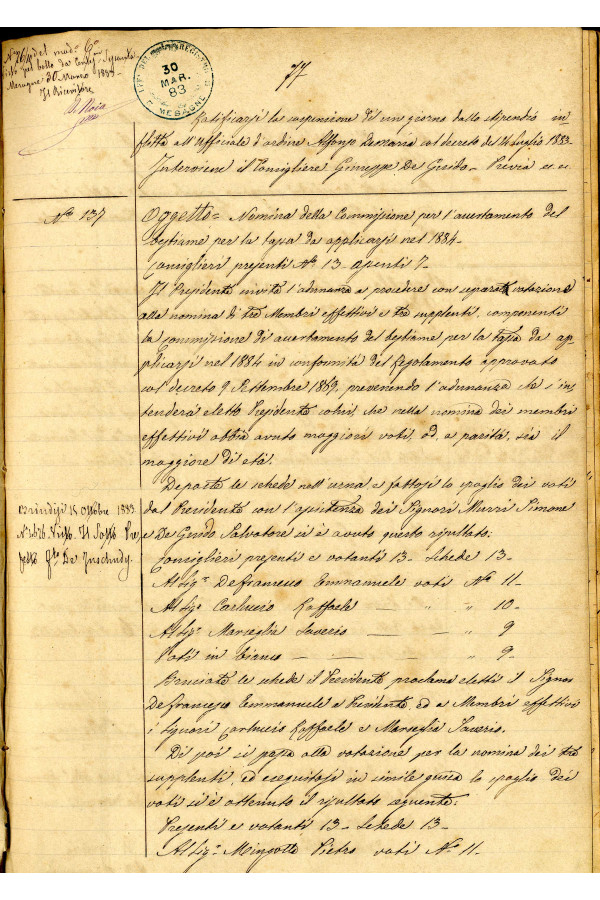 Visto pel bollo da
Mesagne 30 Marzo 188
Il Ricevitore
UFF. DEL REGISTRO
30
MAR.
83
MESAGNE
77
Ratificarsi la sospensione di un giorno dallo stipendio in
flitta all'Ufficiale d'ordine Alfonso Demaria col decreto del 14 Luglio 1883
Interviene il Consigliere Giuseppe De Guido - Previa
No 137
Oggetto = Nomina della Commissione per l'accertamento del
bestiame per la tassa da applicarsi nel 1884 -
Consiglieri presenti No 13 - assenti 7 -
Il Presidente invita l'adunanza a procedere con separate votazione
alla nomina di tre Membri effettivi e tre supplenti, componenti
la commissione di accertamento del bestiame per la tassa da ap-
plicarsi nel 1884 in conformità del Regolamento approvato
col decreto 9 Settembre 1869, prevenendo l'adunanza che s'in
tenderà eletto Presidente colui, che nella nomina dei membri
effettivi abbia avuto maggiori voti, od, a parità, sia il
maggiore di età.
Deposte le schede nell'urna e fattosi lo spoglio dei voti
dal Presidente con l'assistenza dei Signori Murri Simone
e De Guido Salvatore si è avuto questo risultato:
Brindisi 15 Ottobre 1883
Visto. Il Sotto Pre
fetto
Consiglieri presenti e votanti 13 - Schede 13 -
Al Sigr Defrancesco Emmanuele voti No 11 -
Al Sigr Carluccio Raffaele - " " 10 -
Al Sigr Marseglia Saverio - - " 9
Voti in bianco - - " 9 -
Bruciate le schede il Presidente proclama eletti il Signor
Defrancesco Emmanuele a Presidente, ed a Membri effettivi
i signori Carluccio Raffaele e Marseglia Saverio.
Di poi si passa alla votazione per la nomina dei tre
supplenti, ed eseguitosi in simile guisa lo spoglio dei
voti si è ottenuto il risultato seguente:
Presenti e votanti 13 - Schede 13 -
Al Sigr Mingolla Pietro voti No 11 -